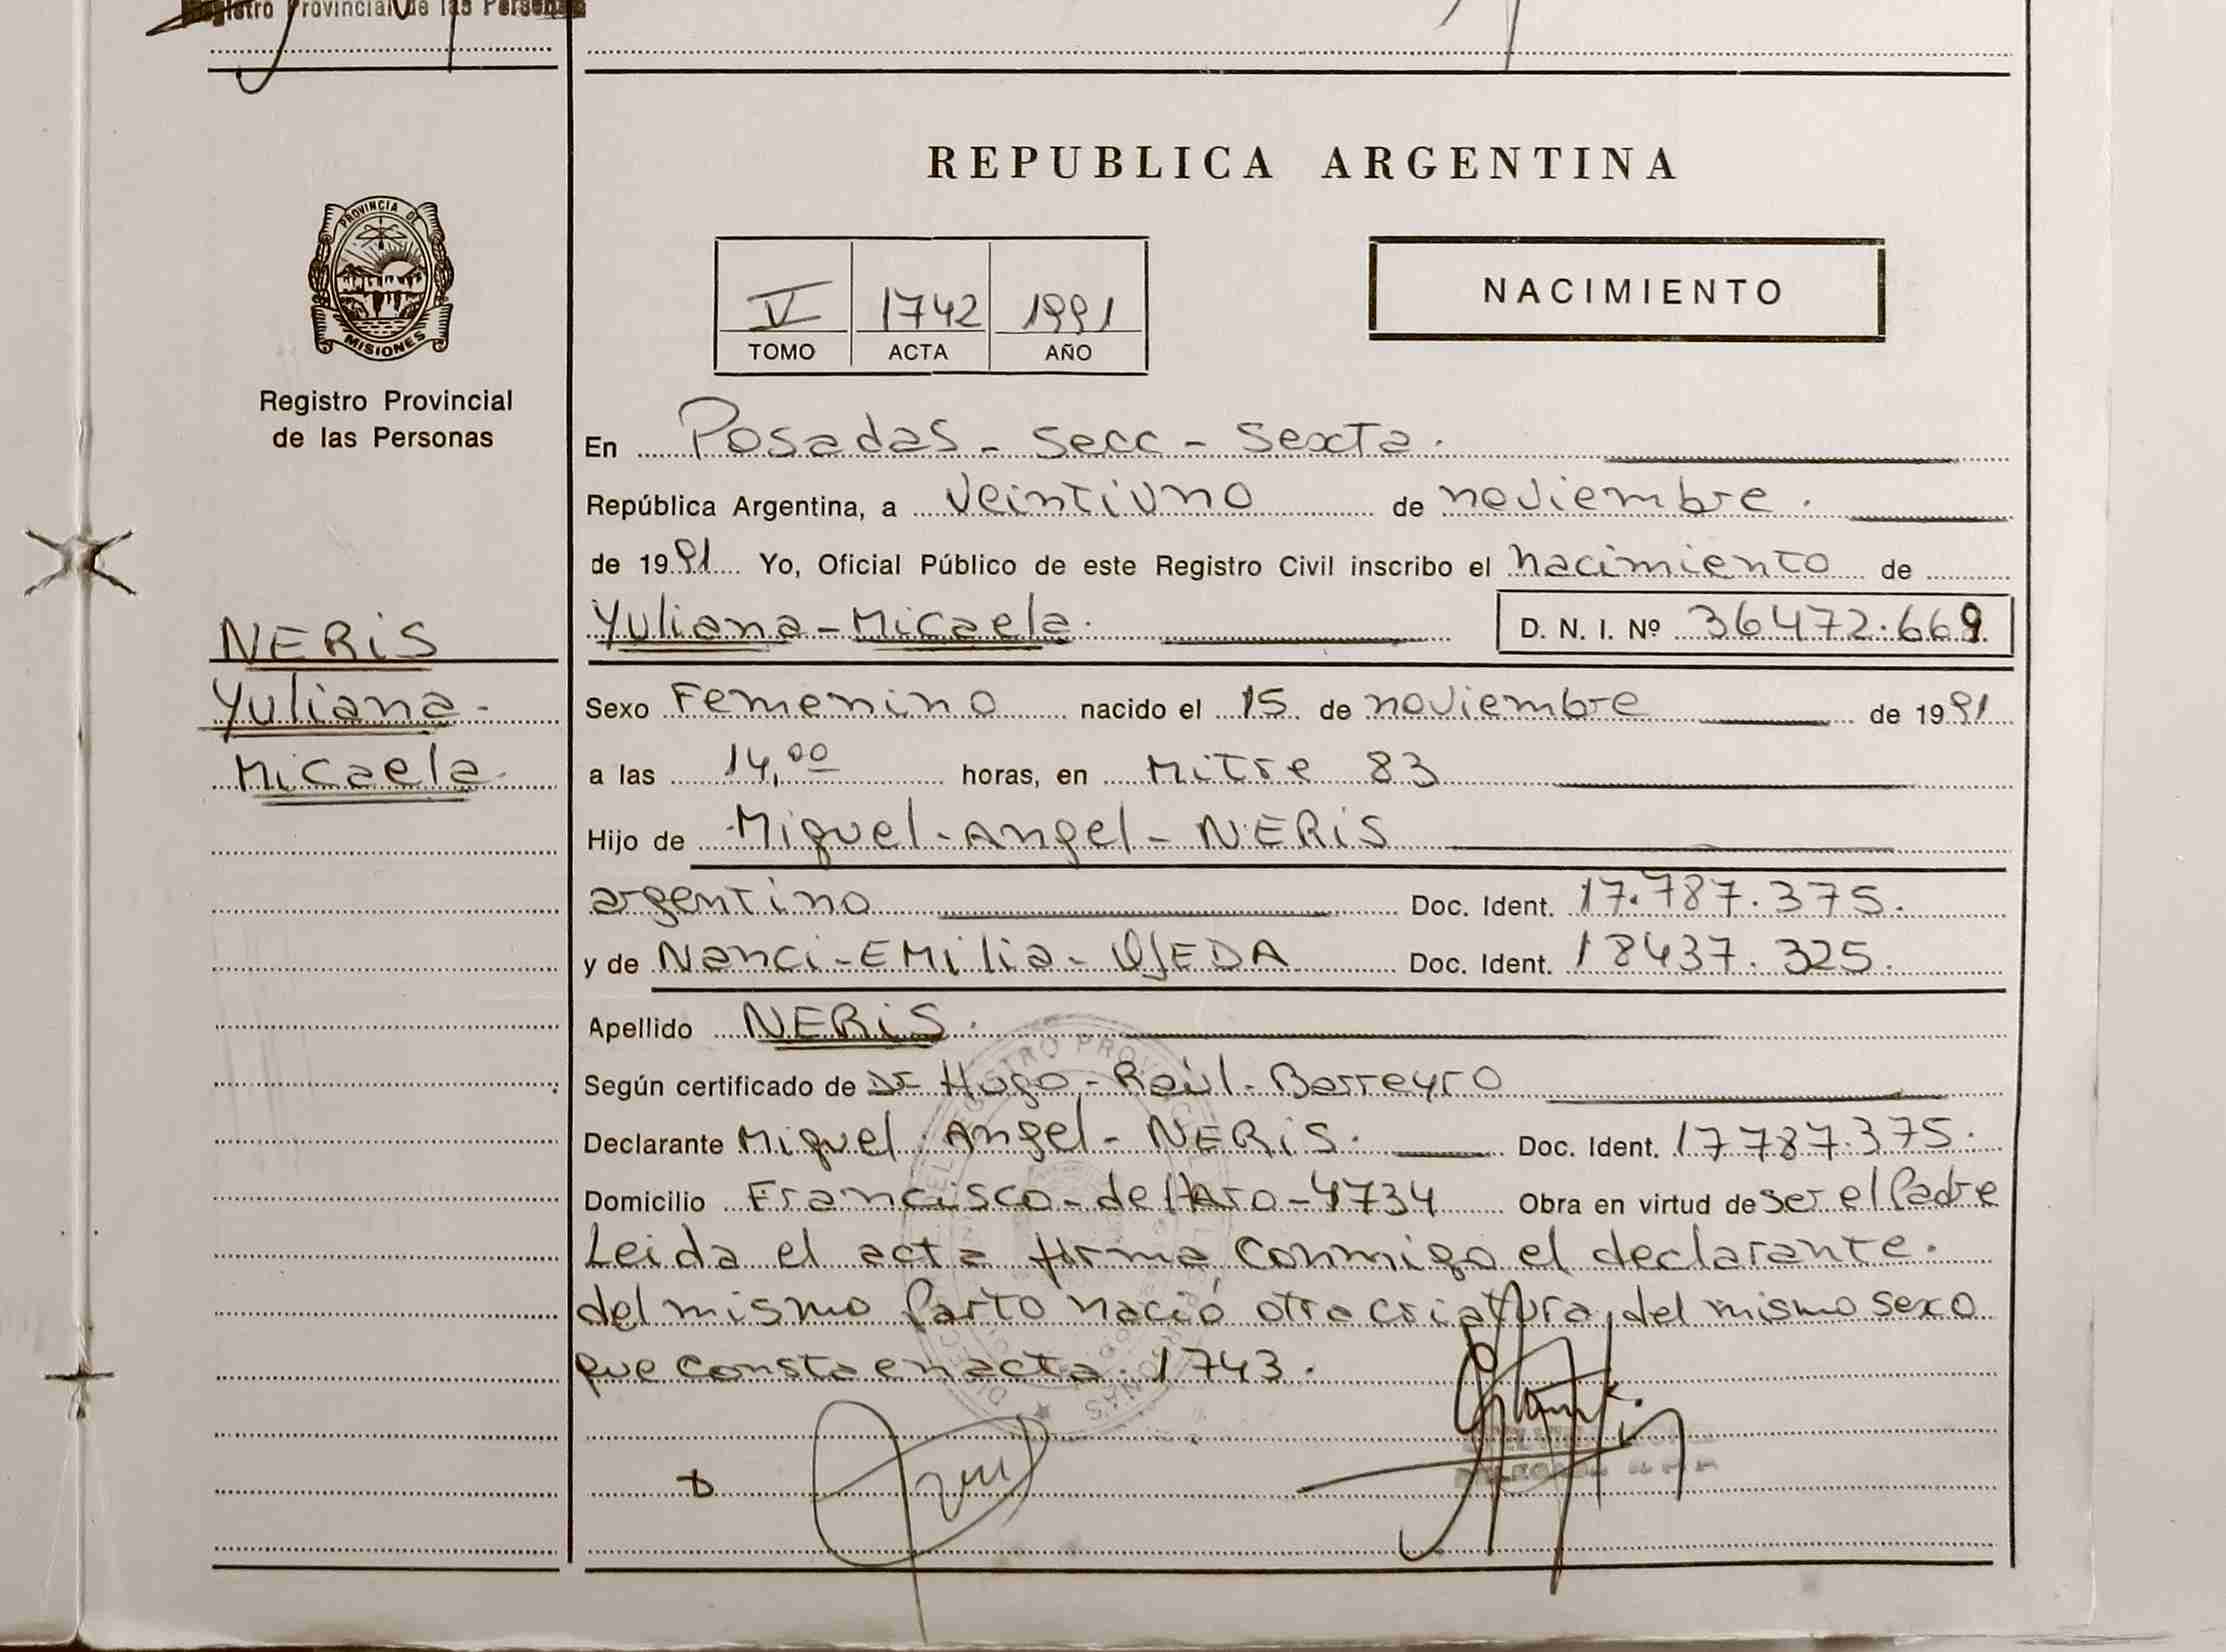 Registro Provincial de las Personas
REPUBLICA ARGENTINA
PROVINCIA DE
MISIONES
Registro Provincial
de las Personas
V 1742 1991
TOMO ACTA AÑO
NACIMIENTO
En Posadas - Secc - Sexta.
República Argentina, a veintiuno de noviembre.
de 1991 Yo, Oficial Público de este Registro Civil inscribo el nacimiento de
Yuliana - Micaela. D. N. I. Nº 36472.669
NERiS
Yuliana -
Micaela.
Sexo Femenino nacido el 15 de noviembre de 1991
a las 14,00 horas, en Mitre 83
Hijo de Miguel - Angel - NERiS
argentino Doc. Ident. 17.787.375.
y de Nanci - EMilia - OJEDA Doc. Ident. 18437.325.
Apellido NERiS.
Según certificado de Dr Hugo - Raúl - Barreyro
Declarante Miguel Angel - NERiS. Doc. Ident. 17787.375.
Domicilio Francisco - de Haro - 4734 Obra en virtud de ser el Padre
Leida el acta firma conmigo el declarante.
del mismo Parto nació otra criatura, del mismo sexo
que consta en acta. 1743.